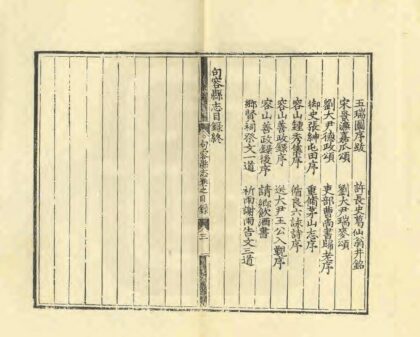 五瑞圖序跋 許長史葛仙翁井銘
宋景濂嘉瓜頌 劉大尹瑞麥頌
劉大尹德政頌 吏部曹尚書歸老序
御史張紳屯田序 重脩茅山志序
容山鍾秀序 良六詠詩序
容山善政錄序 送大尹王公入覲序
容山善政錄後序 請鄉飲酒書
鄉賢祠祭文一道 祈雨謝雨告文三道
句容縣志目錄終
句容縣志卷之目錄 三